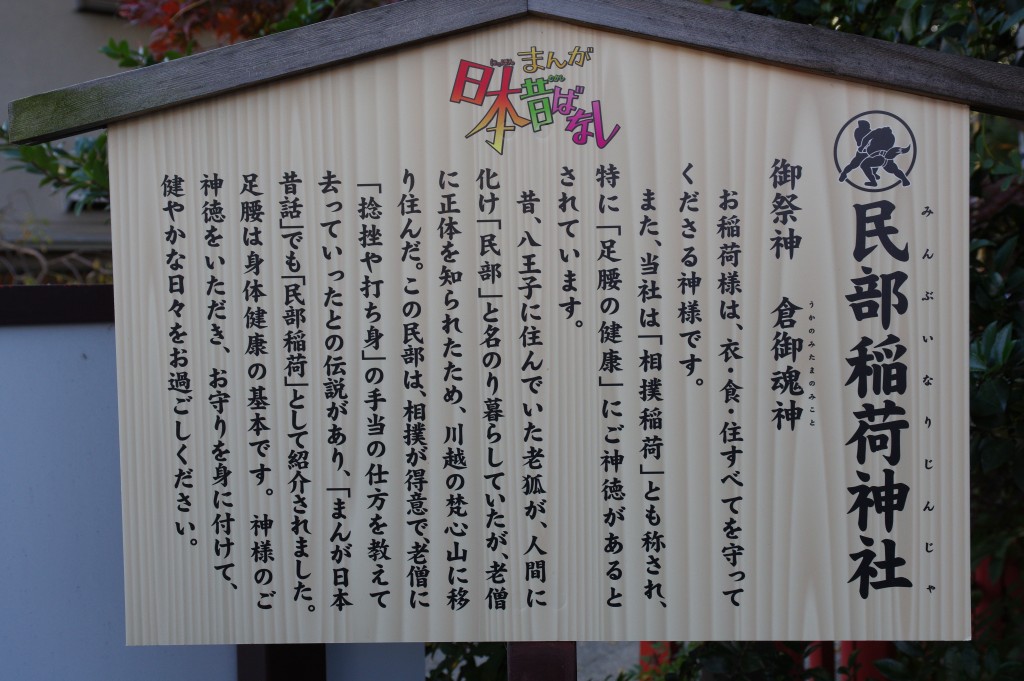 まんが
日本昔ばなし
にっぽん
むかし
民部稲荷神社
みんぶいなりじんじゃ
御祭神 倉御魂神
うかのみたまのみこと
お稲荷様は、衣・食・住すべてを守って
くださる神様です。
また、当社は「相撲稲荷」とも称され、
特に「足腰の健康」にご神徳があると
されています。
昔、八王子に住んでいた老狐が、人間に
化け「民部」と名のり暮らしていたが、老僧
に正体を知られたため、川越の梵心山に移
り住んだ。この民部は、相撲が得意で、老僧に
「捻挫や打ち身」の手当の仕方を教えて
去っていったとの伝説があり、「まんが日本
昔話」でも「民部稲荷」として紹介されました。
足腰は身体健康の基本です。神様のご
神徳をいただき、お守りを身に付けて、
健やかな日々をお過ごしください。